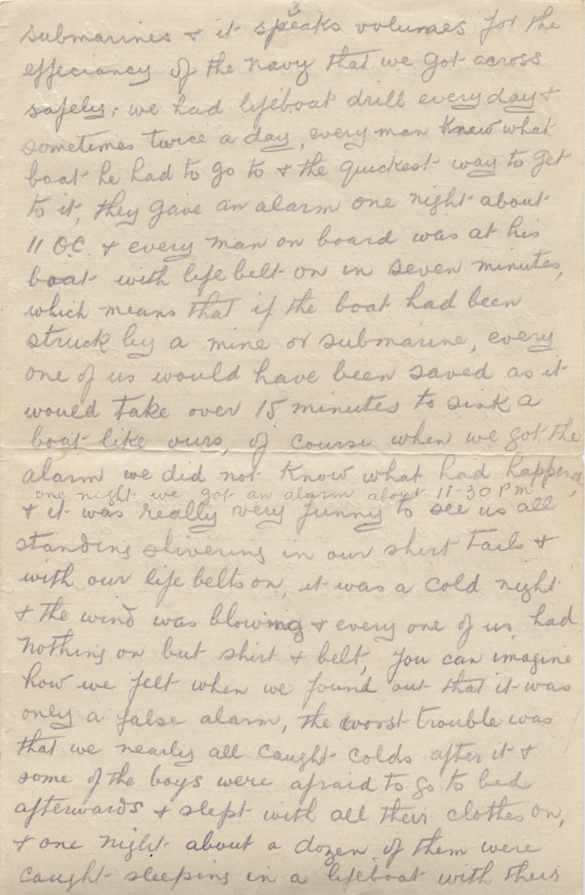 3
submarines & it speaks volumes for the
effeciancy of the navy that we got across
safely, we had lifeboat drill every day &
sometimes twice a day, every man knew what
boat he had to go to & the quickest way to get
to it, they gave an alarm one night about
11 OC. & every man on board was at his
boat with life belt on in seven minutes,
which means that if the boat had been
struck by a mine or submarine, every
one of us would have been saved as it
would take over 15 minutes to sink a
boat like ours, of course when we got the
alarm we did not know what had happend,
one night we got an alarm about 11-30 PM
& it was really very funny to see us all
standing shivering in our shirt tails &
with our life belts on, it was a cold night
& the wind was blowing & every one of us had
nothing on but shirt & belt, you can imagine
how we felt when we found out that it was
only a false alarm, the worst trouble was
that we nearly all caught colds after it &
some of the boys were afraid to go to bed
afterwards & slept with all their clothes on,
& one night about a dozen of them were
caught sleeping in a lifeboat with their